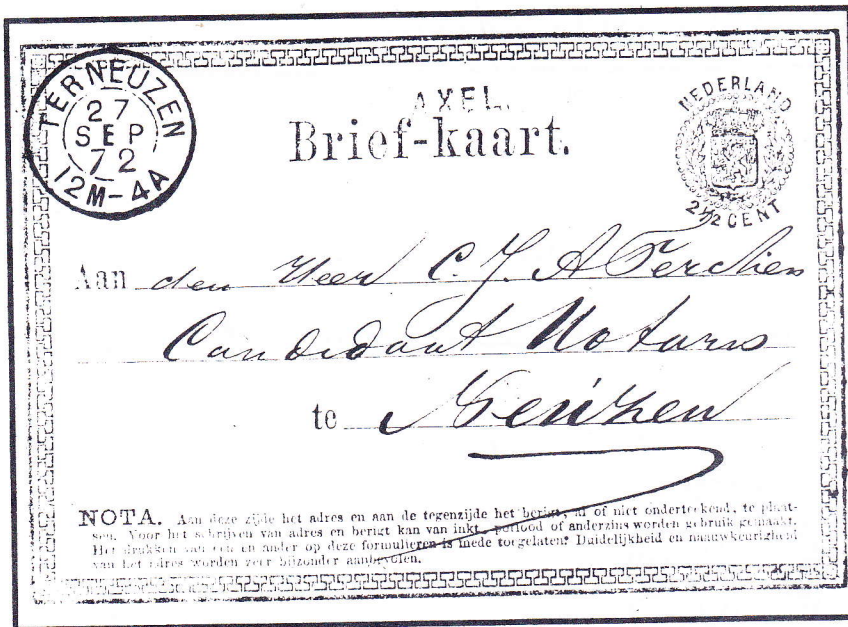 TERNEUZEN
27
SEP
72
12M-4A
AXEL.
Brief-kaart.
NEDERLAND
2½ CENT
Aan den Heer C. J. A
Candidaat Notaris
te Neuzen
NOTA. Aan deze zijde het adres en aan de tegenzijde het berigt, al of niet onderteekend, te plaat-
sen. Voor het schrijven van adres en berigt kan van inkt, potlood of anderzins worden gebruik gemaakt.
Het drukken van een en ander op deze formulieren is mede toegelaten. Duidelijkheid en naauwkeurigheid
van het adres worden zeer bijzonder aanbevolen.